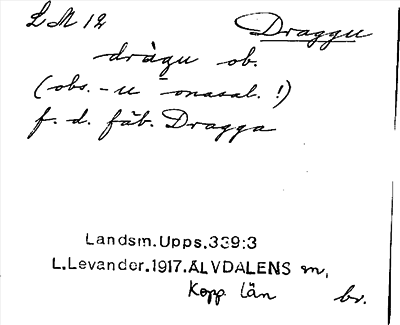 LM 12 Draggu
dràgu ob.
(obs. -u onasal. !)
f. d. fäb. Dragga
Landsm.Upps.339:3
L.Levander.1917.ÄLVDALENS m,
Kopp. län br.